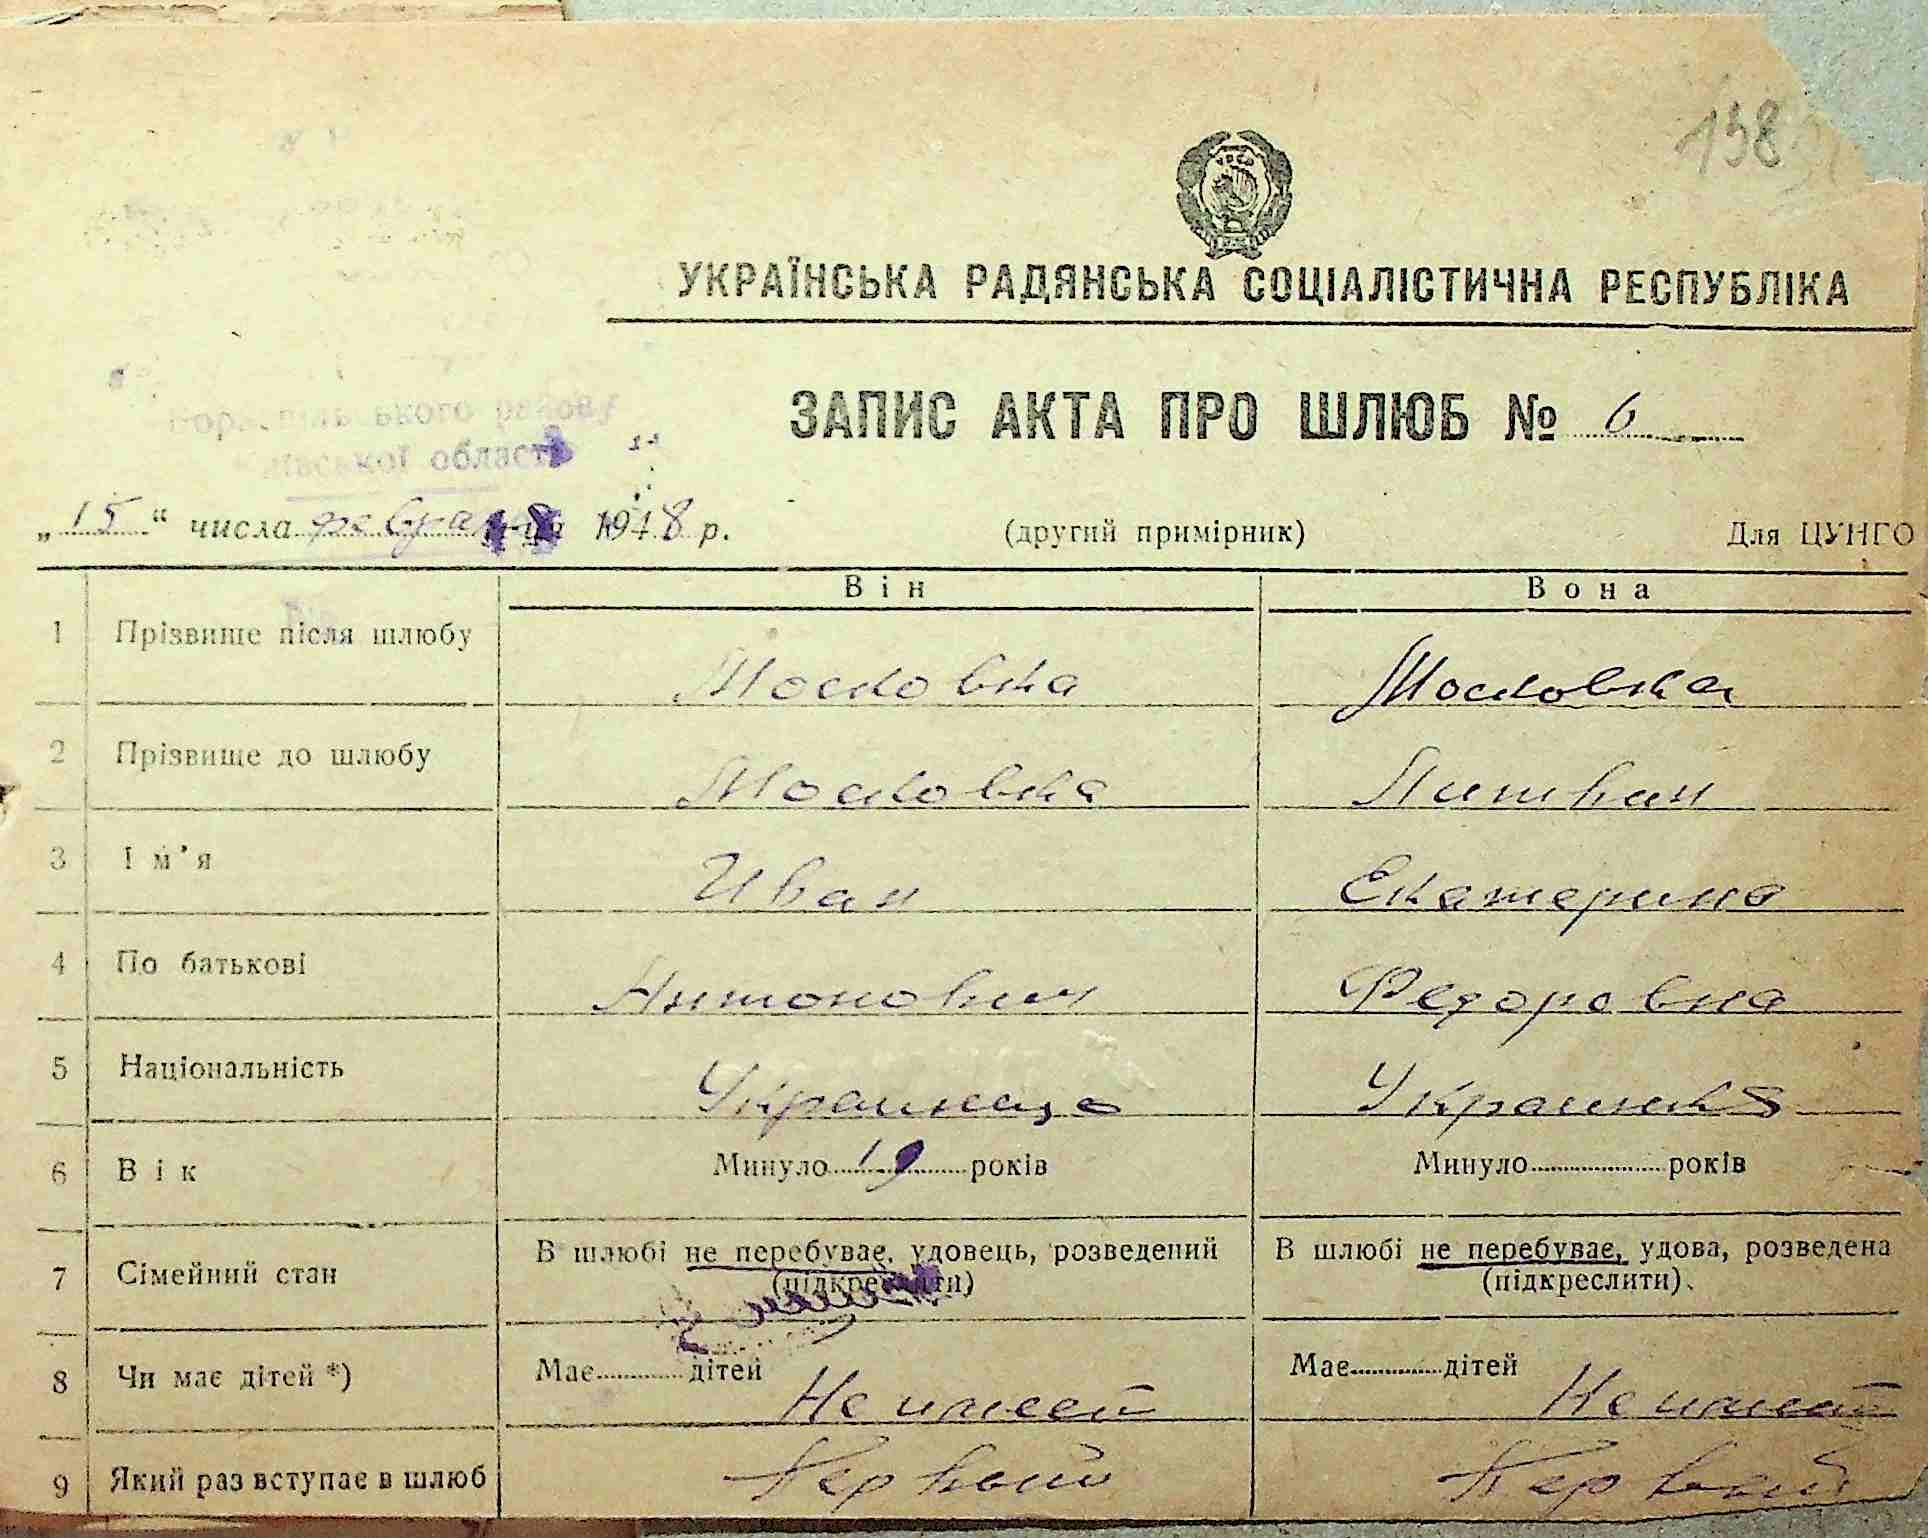 138
УРСР
УКРАЇНСЬКА РАДЯНСЬКА СОЦІАЛІСТИЧНА РЕСПУБЛІКА
ЗАПИС АКТА ПРО ШЛЮБ № 6
ського району
Київської області
„15“ числа февраля 1948 р. (другий примірник) Для ЦУНГО
Він Вона
1 Прізвище після шлюбу Московка Московка
2 Прізвище до шлюбу Московка Литвин
3 Ім’я Иван Екатерина
4 По батькові Антонович Федоровна
5 Національність Украинец Украинка
6 Вік Минуло 19 років Минуло років
7 Сімейний стан В шлюбі не перебуває, удовець, розведений (підкреслити) В шлюбі не перебуває, удова, розведена (підкреслити).
8 Чи має дітей *) Має дітей Не имеет Має дітей Не имеет
9 Який раз вступає в шлюб Первый Первый